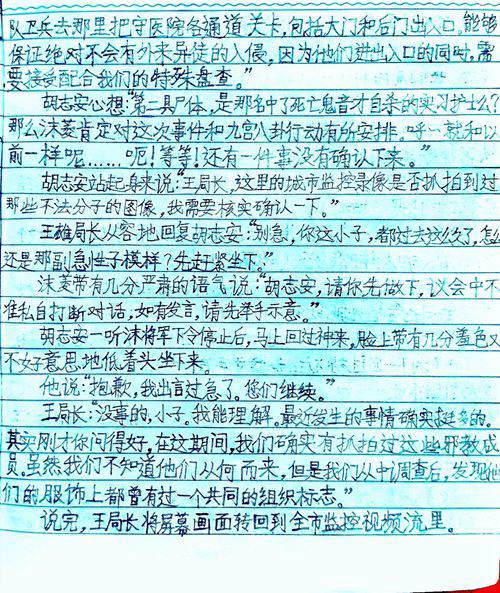 队卫兵去那里把守医院各通道关卡，包括大门和后门出入口。能够
保证绝对不会有外来异徒的入侵，因为他们进出入口的同时，需
要接受配合我们的特殊盘查。”
胡志安心想：“第二具尸体，是那名中了死亡鬼音才自杀的实习护士么？
那么沫菱肯定对这次事件和九宫八卦行动有所安排。呼…就和以
前一样呢……呃！等等！还有一件事没有确认下来。”
胡志安站起身来说：“王局长，这里的城市监控录像是否抓拍到过
那些不法分子的图像，我需要核实确认一下。”
王雄局长从容地回复胡志安：“别急，你这小子，都过去这么久了，怎么
还是那副急性子模样？先赶紧坐下。”
沫菱带有几分严肃的语气说：“胡志安，请你先做下，议会中不
准私自打断对话，如有发言，请先举手示意。”
胡志安一听沫将军下令停止后，马上回过神来，脸上带有几分羞色又
不好意思地低着头坐下来。
他说：“抱歉，我出言过急了。您们继续。”
王局长：“没事的，小子。我能理解。最近发生的事情确实挺多的。
其实刚才你问得好，在这期间，我们确实有抓拍过这些邪教成
员。虽然我们不知道他们从何而来，但是我们从中调查后，发现他
们的服饰上都曾有过一个共同的组织标志。”
说完，王局长将屏幕画面转回到全市监控视频流里。